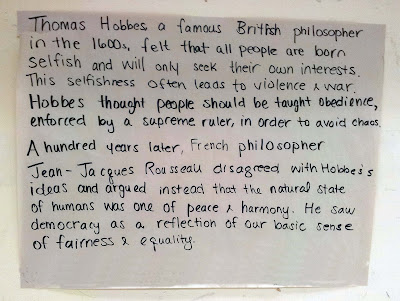 Thomas Hobbes, a famous British philosopher
in the 1600s, felt that all people are born
selfish and will only seek their own interests.
This selfishness often leads to violence & war.
Hobbes thought people should be taught obedience,
enforced by a supreme ruler, in order to avoid chaos.
A hundred years later, French philosopher
Jean-Jacques Rousseau disagreed with Hobbes's
ideas and argued instead that the natural state
of humans was one of peace & harmony. He saw
democracy as a reflection of our basic sense
of fairness & equality.